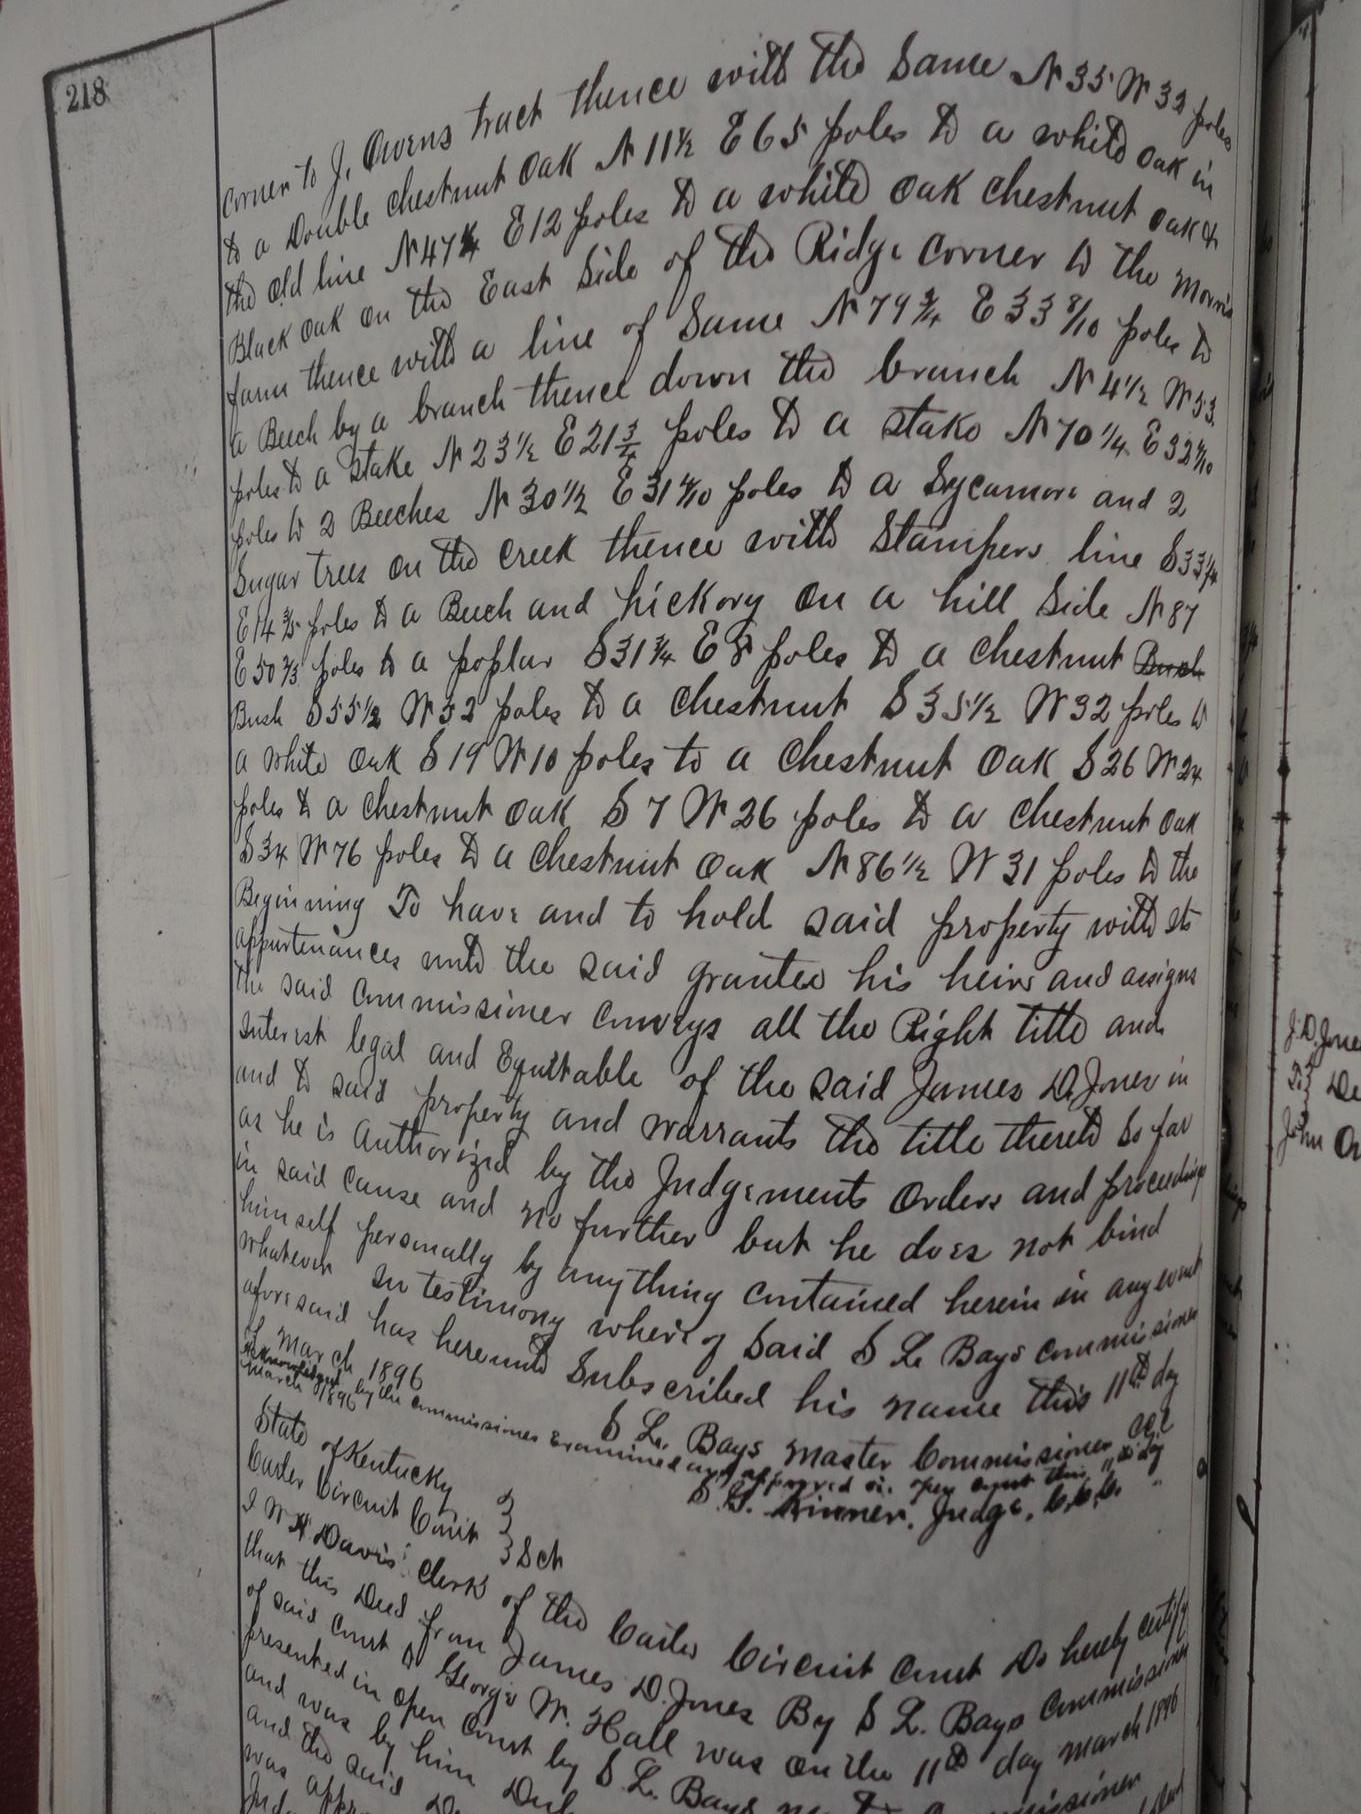 218
corner to J. Owens tract thence with the Same N 35 W 32 poles
to a Double chestnut oak N 11½ E 65 poles to a white oak in
the old line N 47¼ E 12 poles to a white oak chestnut oak &
Black oak on the East Side of the Ridge corner to the Morris
farm thence with a line of Same N 79¾ E 33 8/10 poles to
a Beech by a branch thence down the branch N 4½ W 53
poles to a stake N 23½ E 21¾ poles to a stake N 70¼ E 32 4/10
poles to 2 Beeches N 30½ E 31 4/10 poles to a Sycamore and 2
Sugar trees on the creek thence with Stampers line S 33¼
E 14 poles to a Beech and hickory on a hill Side N 87
E 50 poles to a poplar S 31¾ E 8 poles to a chestnut Bush
Bush S 55½ W 52 poles to a chestnut S 35½ W 32 poles to
a white oak S 19 W 10 poles to a chestnut oak S 26 W 24
poles to a chestnut oak S 7 W 26 poles to a chestnut oak
S 34 W 76 poles to a chestnut oak N 86½ W 31 poles to the
Beginning To have and to hold said property with its
appurtenances unto the said grantee his heirs and assigns
the said commissioner conveys all the Right title and
interest legal and Equitable of the said James D. Jones in
and to said property and warrants the title thereto so far
as he is authorized by the Judgements orders and proceedings
in said cause and no further but he does not bind
himself personally by anything contained herein in any event
whatever In testimony where of Said S L. Bays commissioner
aforesaid has hereunto Subscribed his name this 11th day
of March 1896
S L. Bays Master Commissioner CCC
Acknowledged by the commissioner examined and approved in open court this 11th day
March 1896
S. G. Kinner, Judge, C.C.C.
State of Kentucky
Carter Circuit Court Sct
I W H Davis clerk of the Carter Circuit court Do hereby certify
that this Deed from James D. Jones By S L. Bays commissioner
of said court to George W. Hall was on the 11th day March 1896
presented in open court by S L. Bays
and was by him
and the said
was
J. D. Jone
To De
John Ow